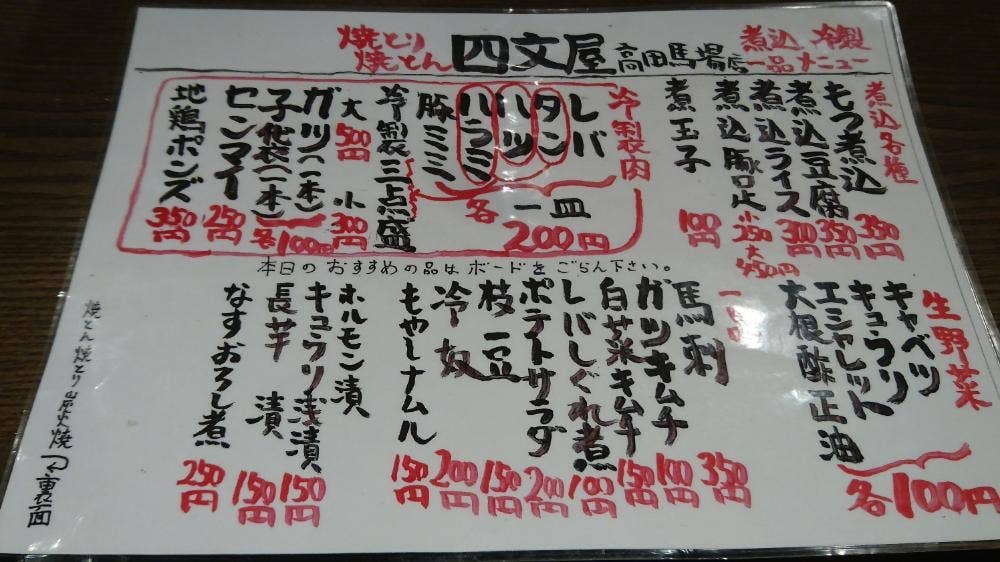 焼とり
焼とん
四文屋
高田馬場店
煮込 冷製
一品メニュー
煮込各種
もつ煮込 350円
煮込豆腐 350円
煮込ライス 300円
煮込豚足 小250 大450円
煮玉子 100円
冷製肉
レバ
タン
ハツ
ハラミ
豚ミミ
各一皿
200円
冷製三点盛
大500円 小300円
ガツ(一本)
子袋(一本)
各100円
センマイ 250円
地鶏ポンズ 350円
本日のおすすめの品はボードをごらん下さい。
生野菜
キャベツ
キュウリ
エシャレット
大根酢正油
各100円
一品
馬刺 350円
ガツキムチ 100円
白菜キムチ 150円
レバしぐれ煮 100円
ポテトサラダ 200円
枝豆 150円
冷奴 200円
もやしナムル 150円
ホルモン漬
キュウリ浅漬 150円
長芋漬 150円
なすおろし煮 250円
焼とん焼とり炭火焼つ裏面